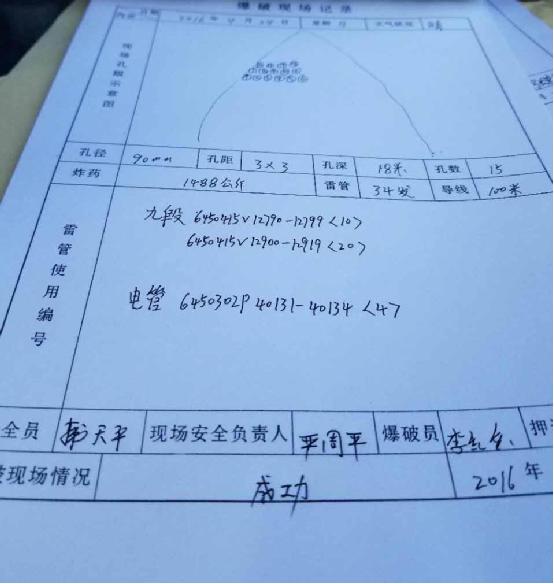 爆破现场记录
日期
内容
2016年4月24日
星期日
天气状况
晴
现场孔眼示意图
孔径 90mm 孔距 3×3 孔深 18米 孔数 15
炸药 1488公斤 雷管 34发 导线 100米
雷管使用编号
九段 6450415V12790-12799<10>
6450415V12900-12919<20>
电管 6450302P40131-40134<4>
全员 现场安全负责人 平周平 爆破员 押
现场情况 成功 2016年